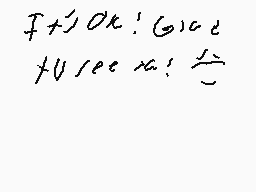 It's Ok! Glad
to see ya!